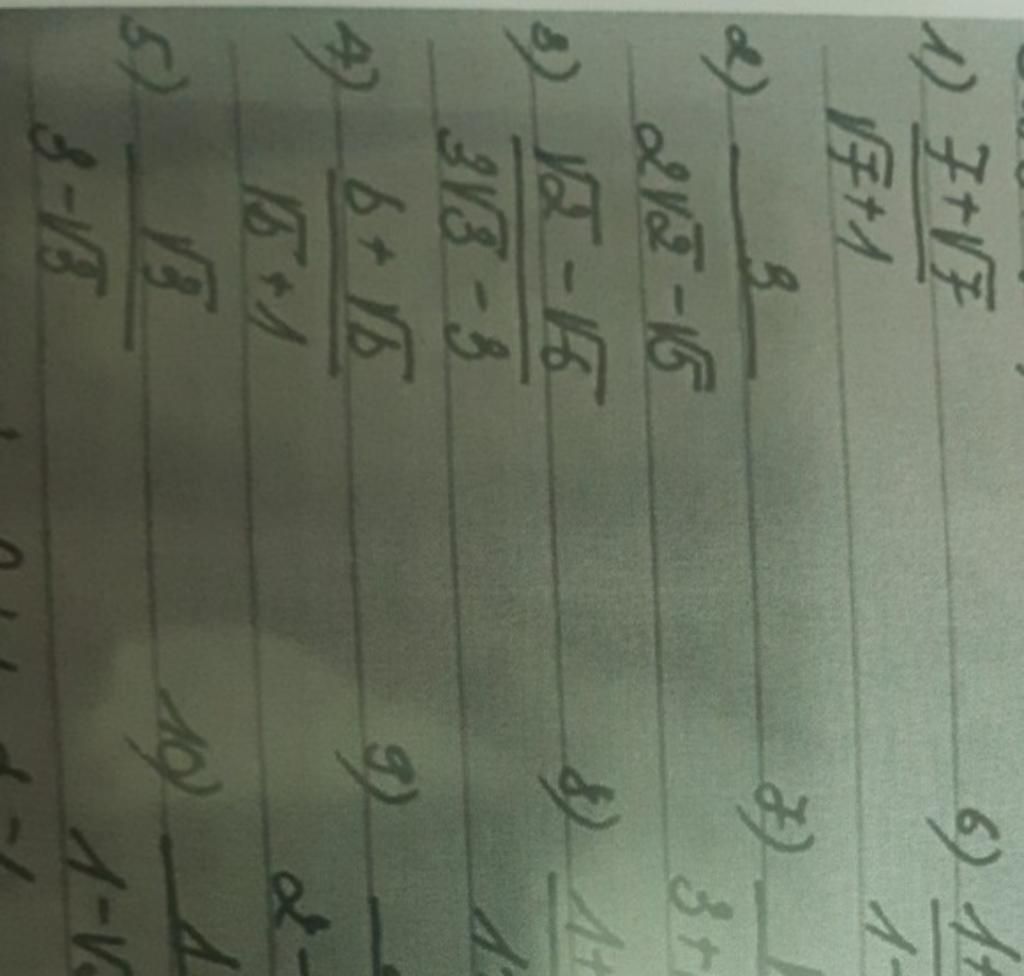 1) 7+√7
√7+1
2) 3
2√2-√5
3) √2-√6
3√3-3
4) 6+√6
√6+1
5) √3
3-√3
6) 1+
1-
7)
3+
8) 1+
1-
9)
2-
10) 1
1-√